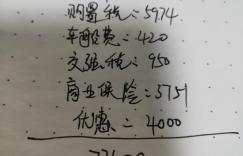 购置税：5974
车船费：420
交强税：950
商业保险：3751
优惠：4000